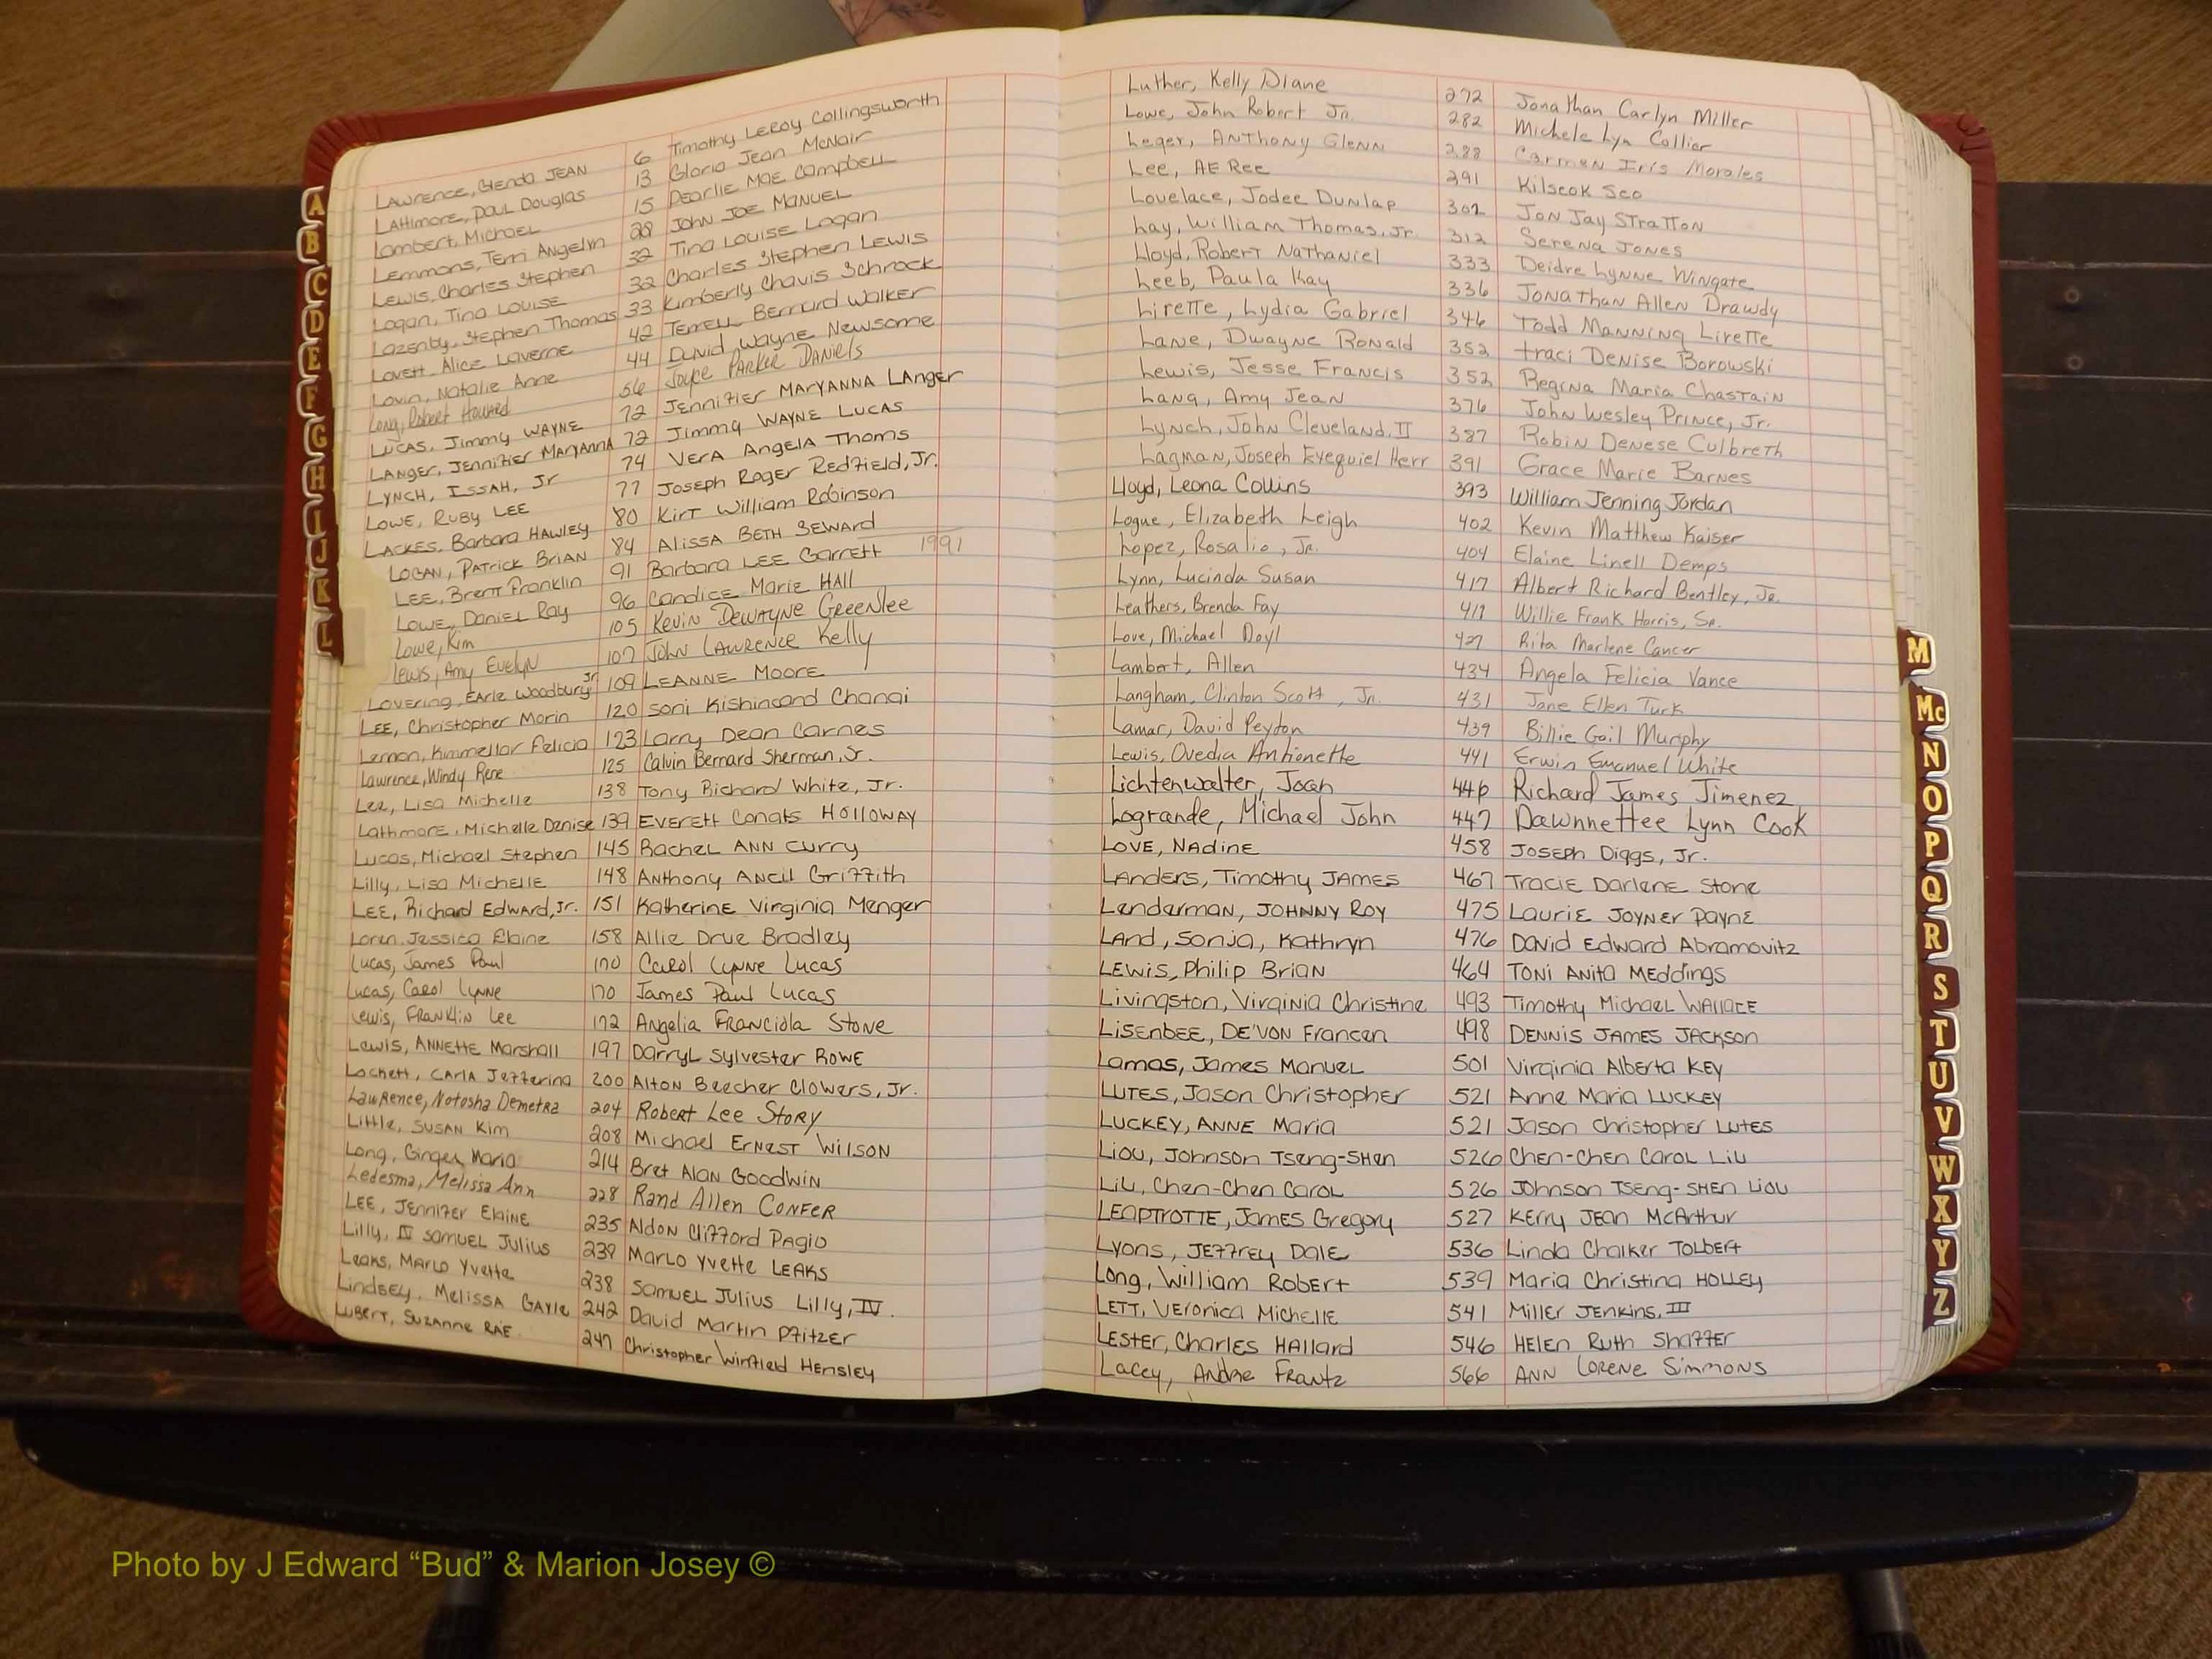 LAWRENCE, Glenda JEAN 6 Timothy LEROY Collingsworth
LAttimore, Paul Douglas 13 Gloria Jean McNair
Lambert, Michael 15 PEARLIE MAE Campbell
Lemmons, Terri Angelyn 28 John JOE MANUEL
LEWIS, Charles Stephen 32 Tina LOUISE Logan
Logan, Tina LOUISE 32 Charles Stephen LEWIS
Lazenby, Stephen Thomas 33 Kimberly Chavis Schrock
Lovett, Alice Laverne 42 TERRELL Bernard Walker
Lovin, Natalie Anne 44 David Wayne Newsome
Long, Robert Howard 56 Joyce PARKER DANIELS
LUCAS, Jimmy WAYNE 72 JENNIFIER MARYANNA LANGER
LANGER, JENNIFIER MARYANNA 72 Jimmy WAYNE LUCAS
LYNCH, ISSAH, Jr 74 VERA Angela Thoms
LOWE, RUBY LEE 77 Joseph Roger Redfield, Jr.
LACKES, Barbara HAWLEY 80 KIRT William Robinson
LOGAN, PATRICK BRIAN 84 ALISSA BETH SEWARD
LEE, Brent Franklin 91 Barbara LEE Garrett 1991
LOWE, DANIEL Ray 96 Candice Marie HALL
Lowe, Kim 105 Kevin Dewayne Greenlee
Lewis, Amy Evelyn 107 JOHN LAWRENCE Kelly
LOVERING, EARLE Woodbury Jr 109 LEANNE MOORE
LEE, Christopher Morin 120 Soni Kishincand Changi
Lemon, Kimmellar Felicia 123 Larry Dean Carnes
Lawrence, Windy Rene 125 Calvin Bernard Sherman, Sr.
Lee, Lisa Michelle 138 Tony Richard White, Jr.
Lathmore, Michelle Denise 139 EVERETT Conats HOLLOWAY
Lucas, Michael Stephen 145 RachEL ANN Curry
Lilly, Lisa Michelle 148 ANthony ANCIL Griffith
LEE, Richard Edward, Jr. 151 Katherine Virginia Menger
Loren, Jessica Elaine 158 Allie Drue Bradley
Lucas, James Paul 170 Carol Lynne Lucas
Lucas, Carol Lynne 170 James Paul Lucas
Lewis, Franklin Lee 172 Angelia Franciola Stone
Lewis, ANNETTE Marshall 197 DARRYL Sylvester ROWE
Lockett, CARLA Jefferina 200 Alton Beecher Clowers, Jr.
Lawrence, Notosha Demetra 204 Robert Lee Story
Little, SUSAN Kim 208 Michael ERNEST WILSON
Long, Ginger Maria 214 Bret Alan GOODWIN
Ledesma, Melissa Ann 228 Rand Allen CONFER
LEE, Jennifer Elaine 235 Aldon Clifford PAGIO
Lilly, IV Samuel Julius 238 MARLO Yvette LEAKS
Leaks, MARLO Yvette 238 SAMUEL JULIUS Lilly, IV.
LINDSEY, MELISSA GAYLE 242 David Martin Pfitzer
LUBERT, SUZANNE RAE 247 Christopher Winfield Hensley
Luther, Kelly Diane 272 Jonathan Carlyn Miller
Lowe, John Robert Jr. 282 Michele Lyn Collier
Leger, ANTHONY GLENN 288 Carmen Iris Morales
Lee, AE Ree 291 Kilseok Seo
Lovelace, Jodee Dunlap 302 JON Jay STRATTON
Lay, William Thomas, Jr. 312 Serena Jones
Lloyd, Robert Nathaniel 333 Deidre Lynne Wingate
Leeb, Paula Kay 336 Jonathan Allen Drawdy
Lirette, Lydia Gabriel 346 Todd Manning Lirette
Lane, Dwayne Ronald 352 Traci Denise Borowski
Lewis, Jesse Francis 352 Regina Maria Chastain
Lang, Amy Jean 376 John Wesley Prince, Jr.
Lynch, John Cleveland, II 387 Robin Denese Culbreth
Lagman, Joseph Exequiel Herr 391 Grace Marie Barnes
Lloyd, Leona Collins 393 William Jenning Jordan
Logue, Elizabeth Leigh 402 Kevin Matthew Kaiser
Lopez, Rosalio, Jr. 404 Elaine Linell Demps
Lynn, Lucinda Susan 417 Albert Richard Bentley, Jr.
Leathers, Brenda Fay 417 Willie Frank Harris, Sr.
Love, Michael Doyl 427 Rita Marlene Cancer
Lambert, Allen 434 Angela Felicia Vance
Langham, Clinton Scott, Jr. 431 Jane Ellen Turk
Lamar, David Peyton 439 Billie Gail Murphy
Lewis, Ovedia Antionette 441 Erwin Emanuel White
Lichtenwalter, Joan 446 Richard James Jimenez
Logrande, Michael John 447 Dawnnettee Lynn Cook
LOVE, Nadine 458 JOSEPH Diggs, Jr.
LANDERS, TIMOTHY JAMES 467 TRACIE Darlene Stone
Lenderman, JOHNNY ROY 475 LAURIE JOYNER PAYNE
LAND, Sonja, Kathryn 476 DAVID Edward Abramovitz
LEWIS, Philip BRIAN 464 TONI ANITA MEddings
Livingston, Virginia Christine 493 Timothy Michael WALLACE
LISENBEE, DE'VON Francen 498 DENNIS JAMES JACKSON
Lamas, James Manuel 501 Virginia Alberta KEY
LUTES, Jason Christopher 521 Anne Maria LUCKEY
LUCKEY, ANNE Maria 521 Jason Christopher LUTES
LIOU, Johnson TSENG-SHEN 526 CHEN-CHEN CAROL LIU
LIU, Chen-Chen CAROL 526 JOHNSON TSENG-SHEN LIOU
LEAPTROTTE, JAMES Gregory 527 KERRY JEAN McArthur
Lyons, JEFFREY DALE 536 Linda Chalker TOLBERT
Long, William ROBERT 539 Maria Christina HOLLEY
LETT, VERONICA MICHELLE 541 Miller JENKINS, III
LESTER, CHARLES HAllard 546 HELEN RUTH SHAFFER
Lacey, Andre Frantz 566 ANN LORENE SIMMONS
A
B
C
D
E
F
G
H
I
J
K
L
M
Mc
N
O
P
Q
R
S
T
U
V
W
X
Y
Z
Photo by J Edward “Bud” & Marion Josey ©